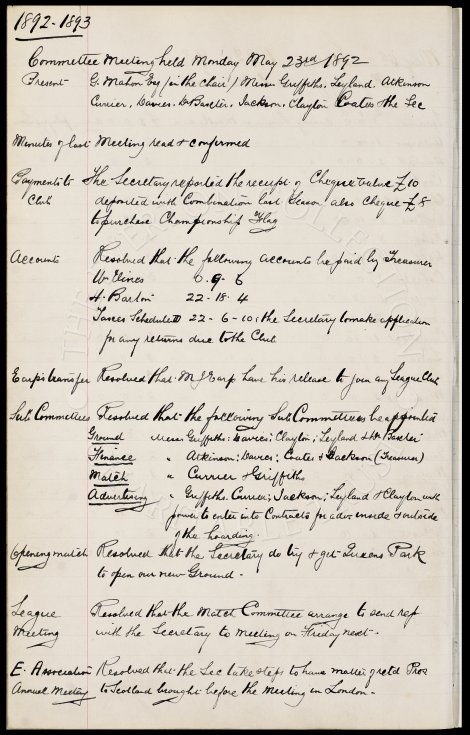 1892-1893
Committee Meeting held Monday May 23rd 1892
Present G. Mahon Esq (in the Chair) Messrs Griffiths, Leyland, Atkinson
Currier, Davies, Dr Baxter, Jackson, Clayton Coates & the Sec
Minutes of last Meeting read & confirmed
Payments to The Secretary reported the receipt of Cheque value £10
Club deposited with Combination last Season, also Cheque £8
to purchase Championship Flag
Accounts Resolved that the following accounts be paid by Treasurer
W. Vines 0.9.6
H. Barton 22-18.4
Taxes Schedule D 22-6-10, the Secretary to make application
for any returns due to the Club
Earps transfer Resolved that M J Earp have his release to join any League Club
Sub Committees Resolved that the following Sub Committees be appointed
Ground Messrs Griffiths; Davies; Clayton; Leyland & Dr Baxter
Finance " Atkinson; Davies; Coates & Jackson (Treasurer)
Match " Currier & Griffiths
Advertising " Griffiths, Currier; Jackson; Leyland & Clayton with
power to enter into Contracts for advs inside & outside
of the hoarding.
Opening match Resolved that the Secretary do try & get Queens Park
to open our new Ground.
League Resolved that the Match Committee arrange to send rep
Meeting with the Secretary to Meeting on Friday next.
E. Association Resolved that the Sec take steps to have matter of retd Pros
Annual Meeting to Scotland brought before the Meeting in London.